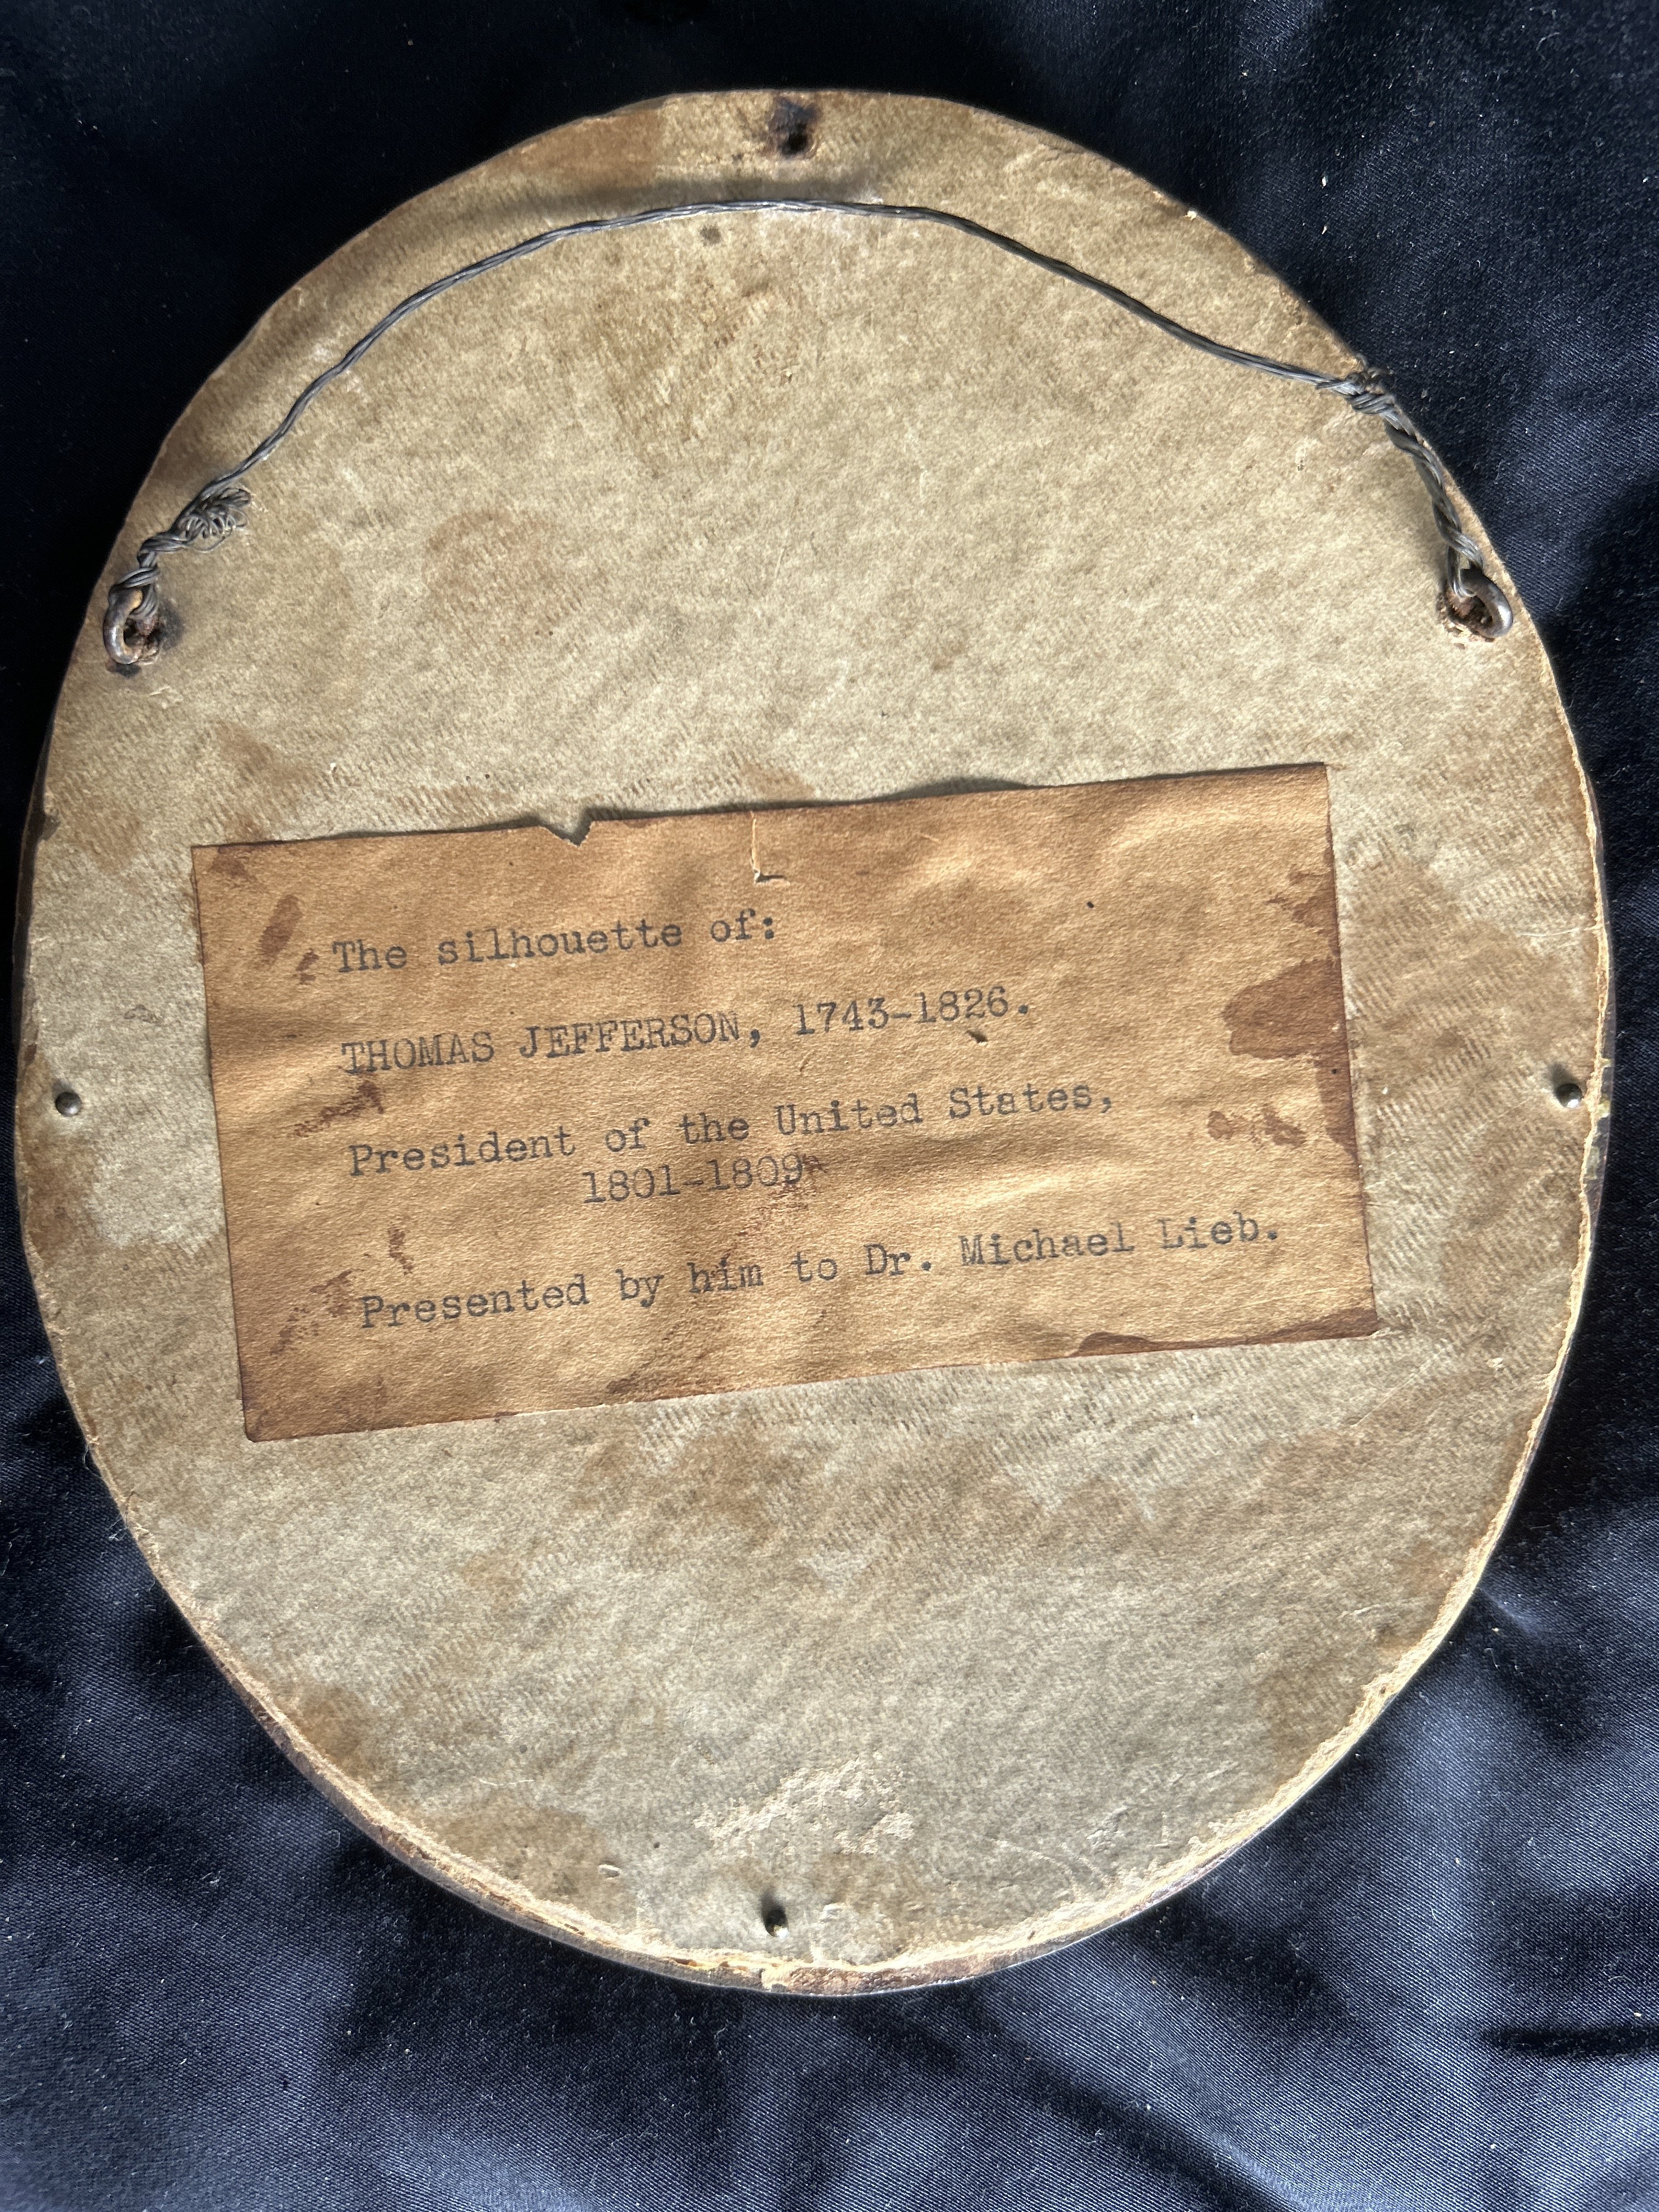 The silhouette of:
THOMAS JEFFERSON, 1743-1826.
President of the United States,
1801-1809
Presented by him to Dr. Michael Lieb.